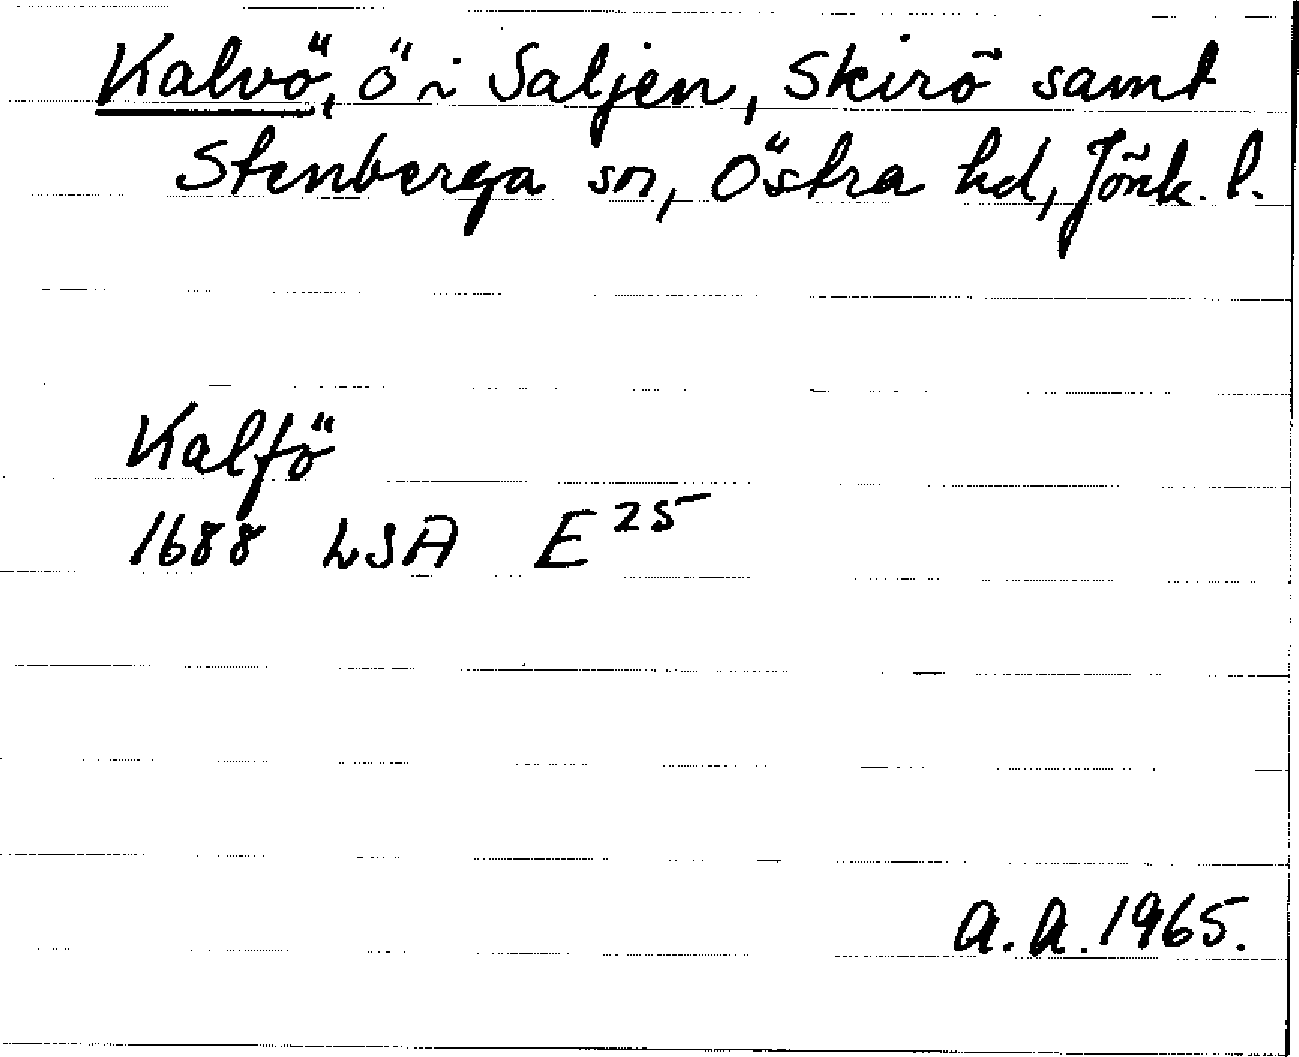 Kalvö, ö i Saljen, Skirö samt
Stenberga sn, Östra hd, Jönk. l.
Kalfö
1688 LSA E 25
A.A. 1965.